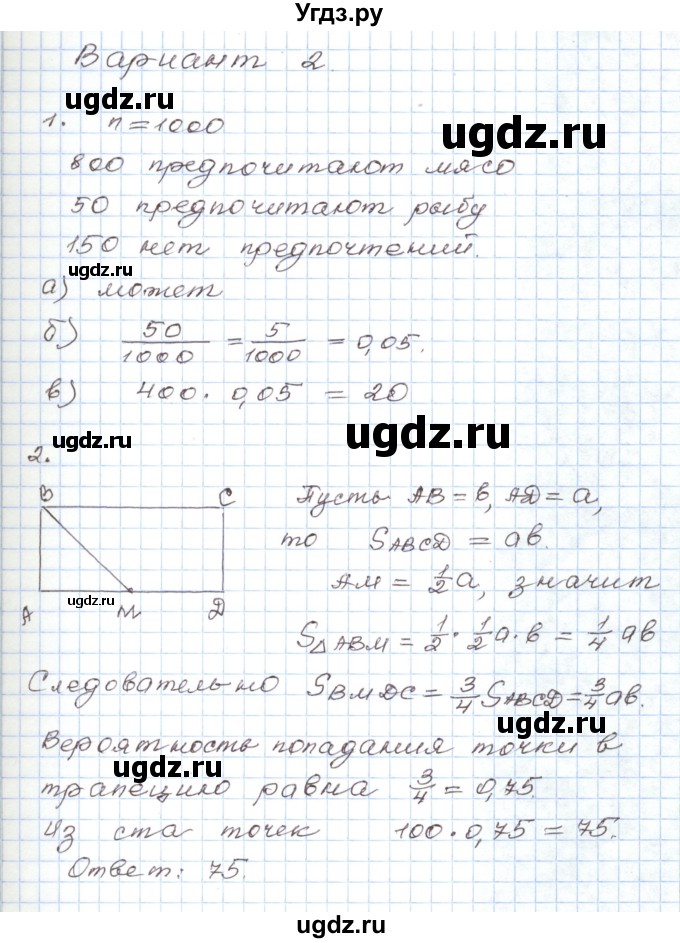 Угдз.ру
Вариант 2.
ugdz.ru
1. n = 1000
ugdz.ru
800 предпочитают мясо
50 предпочитают рыбу
150 нет предпочтений.
ugdz.ru
а) может
б) 50/1000 = 5/1000 = 0,05.
в) 400 · 0,05 = 20
ugdz.ru
ugdz.ru
2.
B C
Пусть AB = b, AD = a,
то SABCD = ab.
AM = 1/2 a, значит
ugdz.ru
A M D
S△ABM = 1/2 · 1/2 a · b = 1/4 ab
Следовательно SBMDC = 3/4 SABCD = 3/4 ab.
ugdz.ru
Вероятность попадания точки в
ugdz.ru
трапецию равна 3/4 = 0,75.
Из ста точек 100 · 0,75 = 75.
Ответ: 75.
ugdz.ru
ugdz.ru